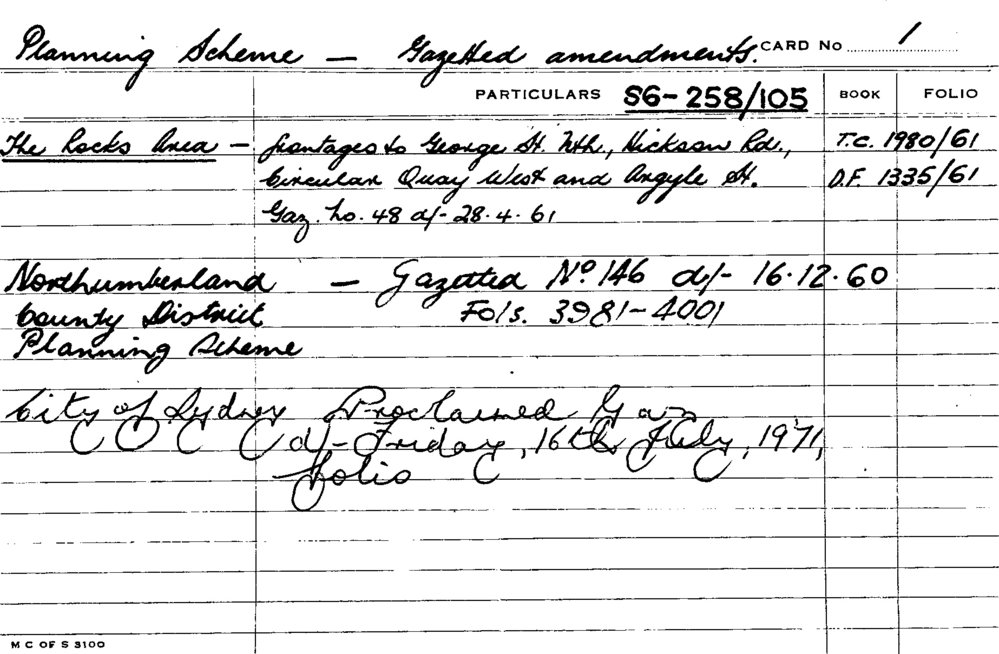 Planning Scheme — Gazetted amendments. CARD No 1
PARTICULARS S6-258/105 BOOK FOLIO
The Rocks Area — frontages to George St. Nth., Hickson Rd., T.C. 1980/61
Circular Quay West and Argyle St. D.F. 1335/61
Gaz. No. 48 d/- 28.4.61
Northumberland — Gazetted No. 146 d/- 16.12.60
County District Fols. 3981-4001
Planning Scheme
City of Sydney Proclaimed Gaz
d/- Friday, 16th July, 1971,
folio
M C OF S 3100